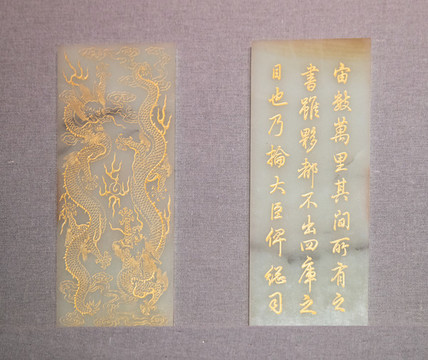 宙數萬里其間所有之
書雖夥都不出四庫之
目也乃掄大臣俾總司